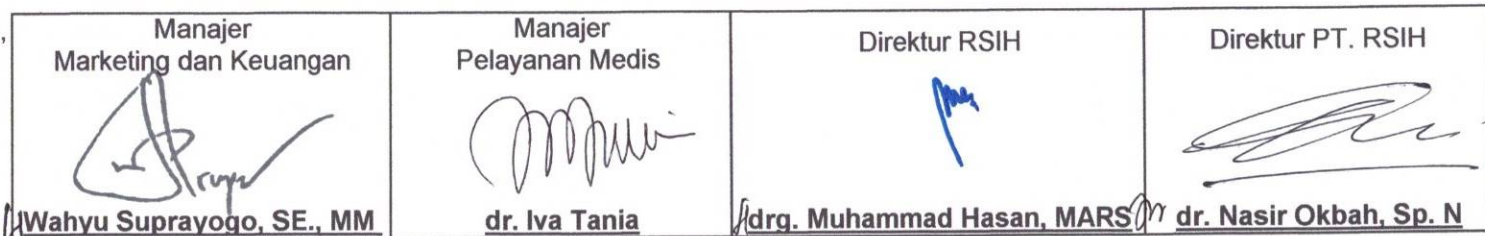 Manajer
Marketing dan Keuangan
Wahyu Suprayogo, SE., MM
Manajer
Pelayanan Medis
dr. Iva Tania
Direktur RSIH
drg. Muhammad Hasan, MARS
Direktur PT. RSIH
dr. Nasir Okbah, Sp. N